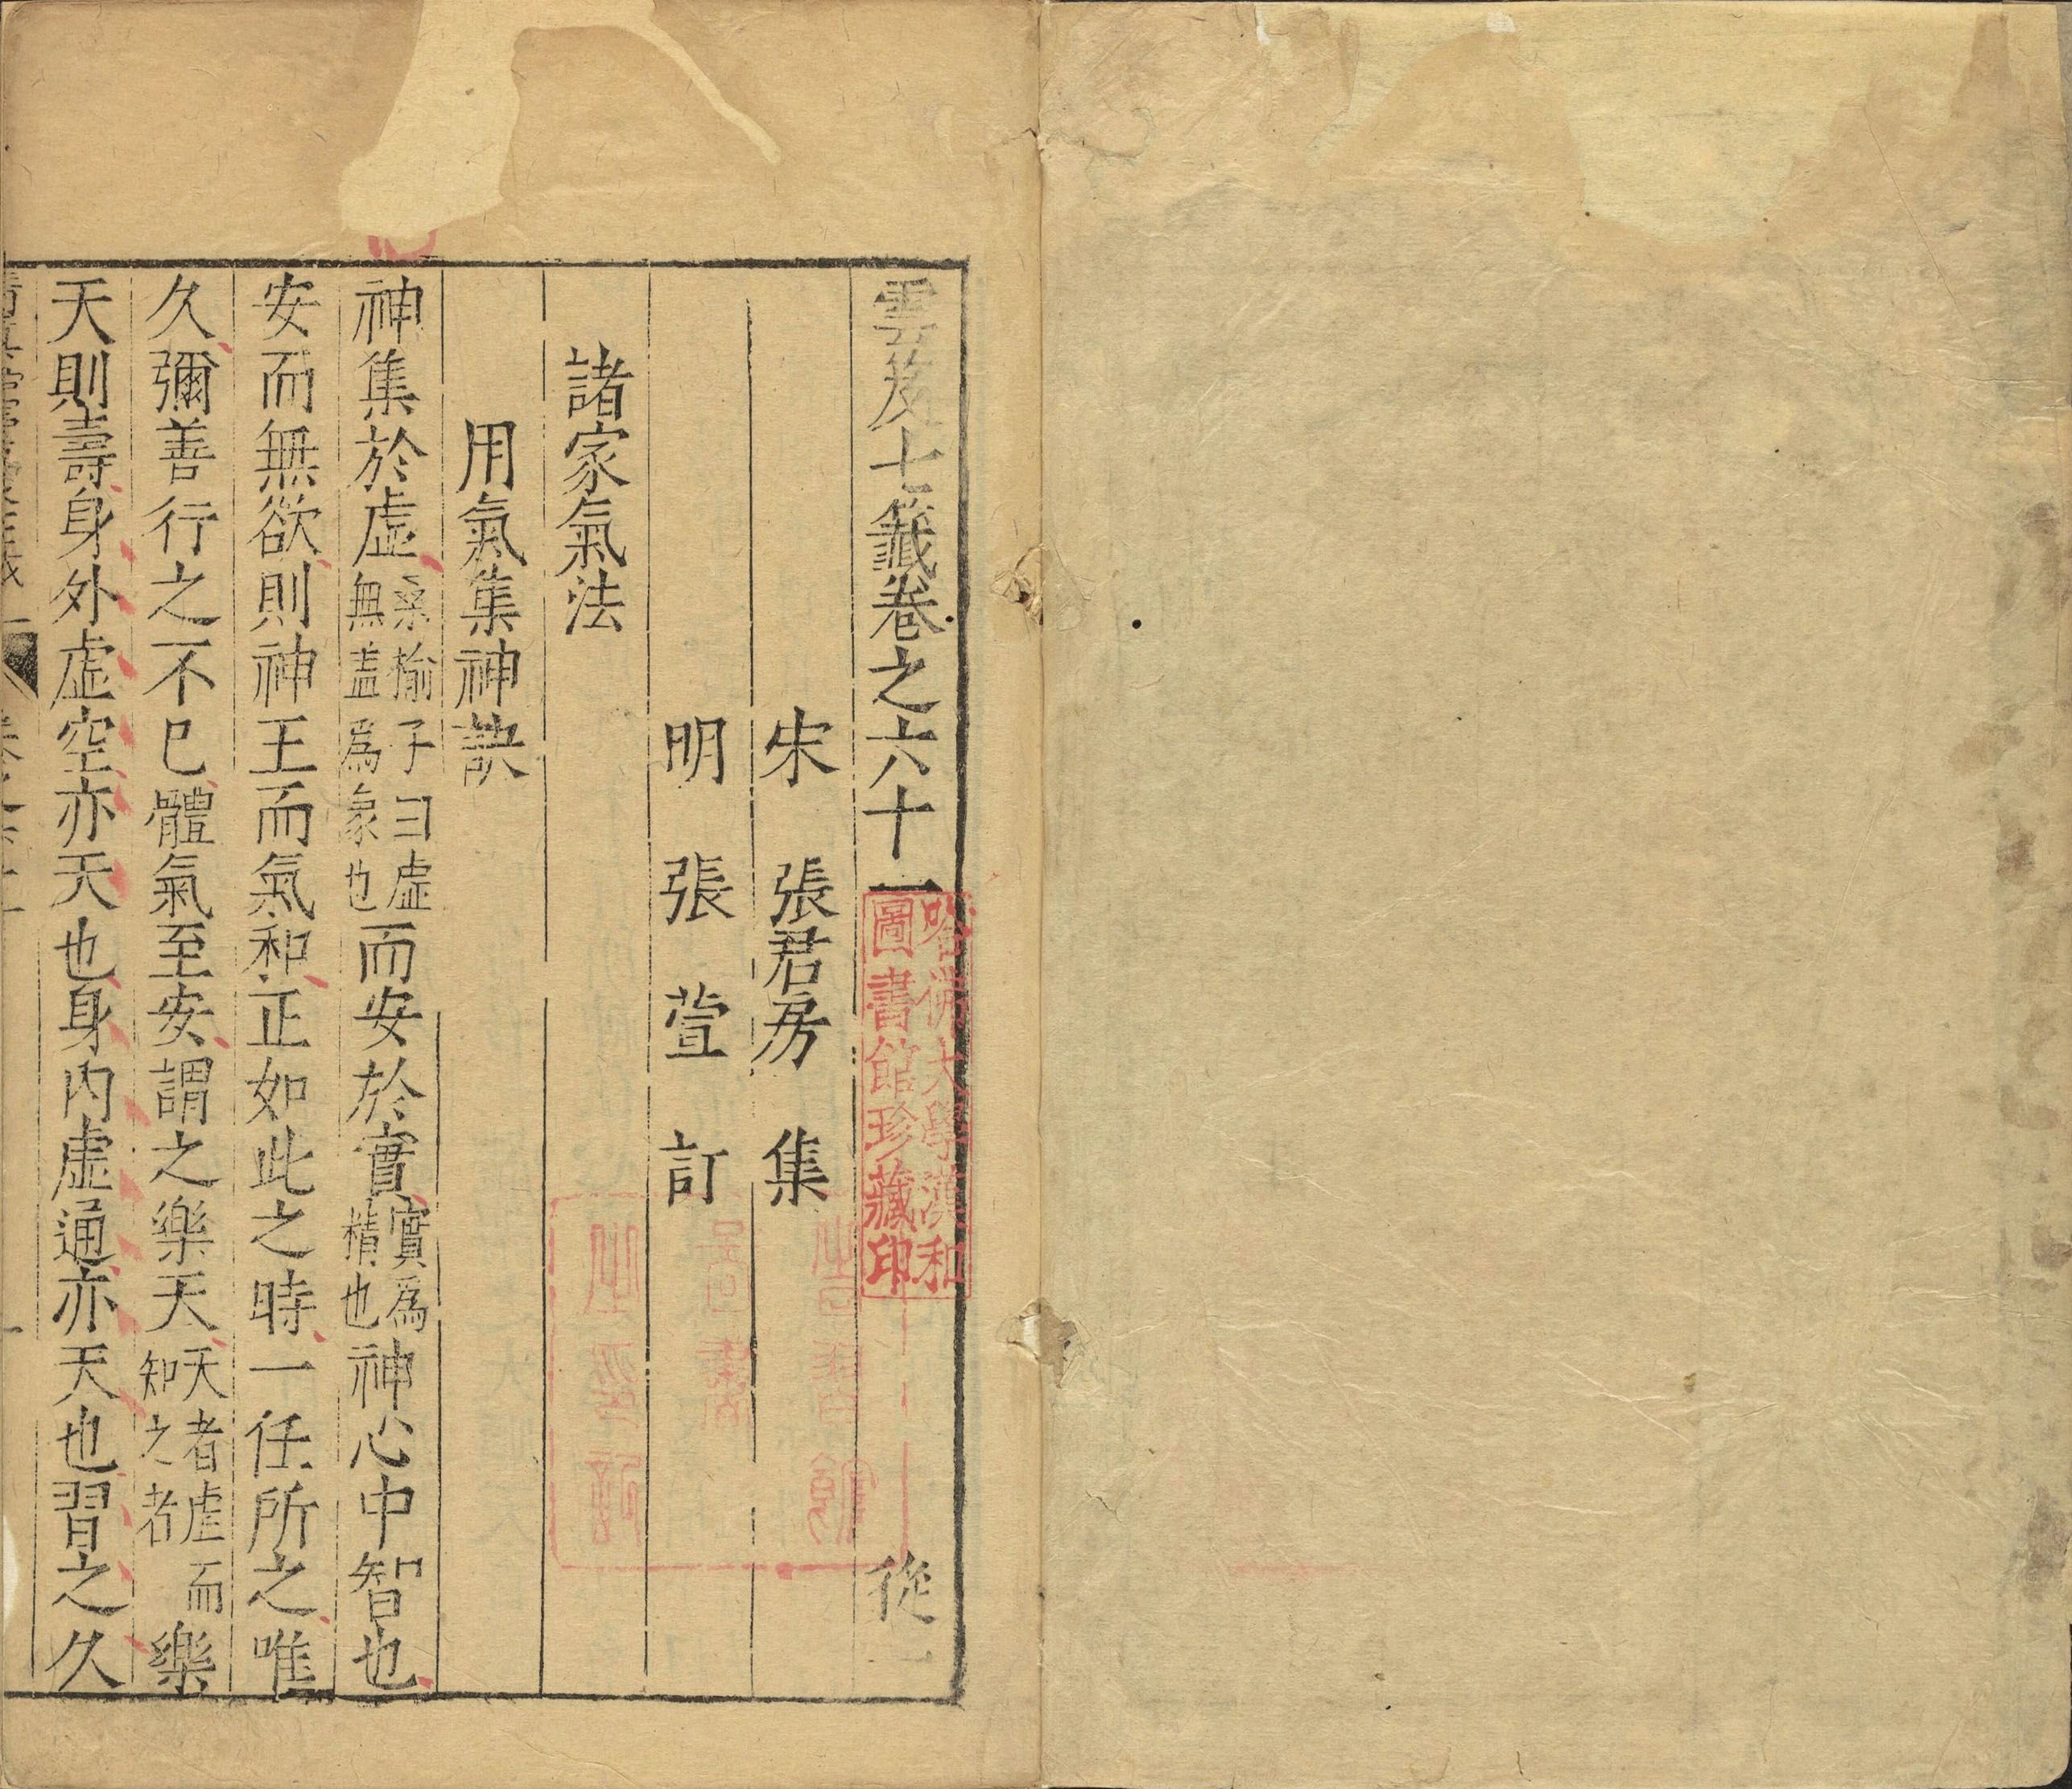 雲笈七籤卷之六十一 從一
宋 張君房 集
明 張萱 訂
諸家氣法
用氣集神訣
神集於虛桑榆子曰虛無葢爲象也而安於實實爲精也神心中智也
安而無欲則神王而氣和正如此之時一任所之唯
久彌善行之不已體氣至安謂之樂天天者虛而知之者樂
天則壽身外虛空亦天也身內虛通亦天也習之久
哈佛大學漢和
圖書館珍藏印